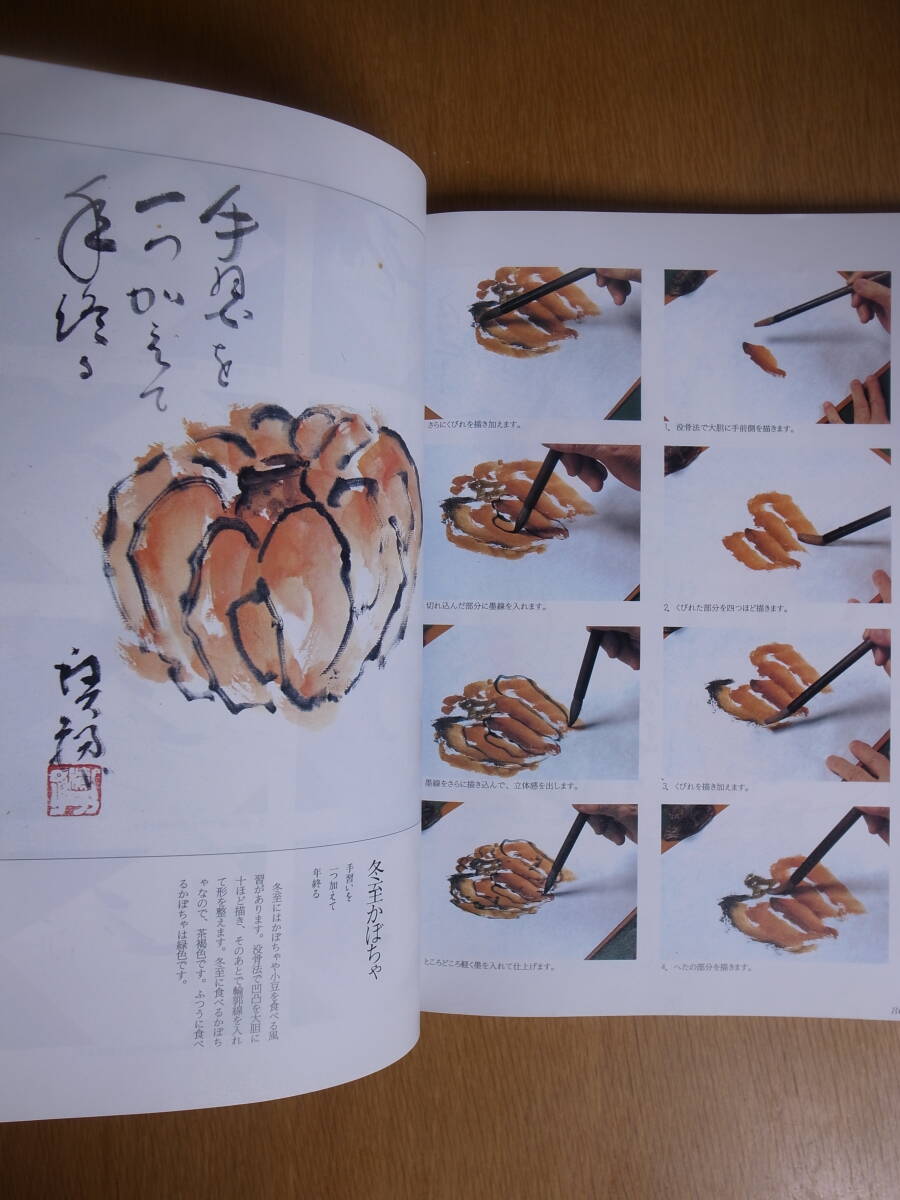 手習を
一つかえて
年終る
冬至かぼちゃ
手習いを
一つ加えて
年終る
冬至にはかぼちゃや小豆を食べる風
習があります。没骨法で凹凸を大胆に
十ほど描き、そのあとで輪郭線を入れ
て形を整えます。冬至に食べるかぼち
ゃなので、茶褐色です。ふつうに食べ
るかぼちゃは緑色です。
1、没骨法で大胆に手前側を描きます。
2、くびれた部分を四つほど描きます。
3、くびれを描き加えます。
4、へたの部分を描きます。
さらにくびれを描き加えます。
切れ込んだ部分に墨線を入れます。
墨線をさらに描き込んで、立体感を出します。
ところどころ軽く墨を入れて仕上げます。